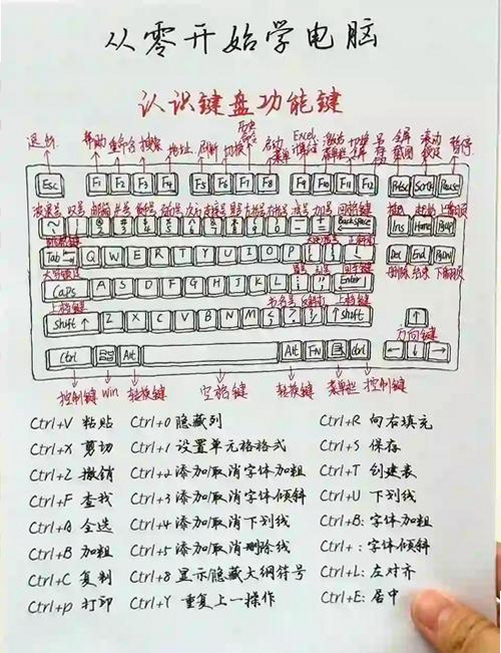 从零开始学电脑
认识键盘功能键
退出 帮助 重命名 搜索 地址 刷新 切换 启动菜单 Excel 全屏截图 滚动锁定 暂停
Esc F1 F2 F3 F4 F5 F6 F7 F8 F9 F10 F11 F12 PrtSc ScrLk Pause
Backspace Ins Home PgUp
Tab Q W E R T Y U I O P Del End PgDn
删除 结束 下翻页
Caps A S D F G H J K L Enter
上档键
Shift ↑ Z X C V B N M ↑ Shift ↑
方向键
Ctrl Alt Alt FN Ctrl ← ↓ →
控制键 Win 转换键 空格键 转换键 菜单栏 控制键
Ctrl+V 粘贴 Ctrl+0 隐藏列 Ctrl+R 向右填充
Ctrl+X 剪切 Ctrl+1 设置单元格格式 Ctrl+S 保存
Ctrl+Z 撤销 Ctrl+2 添加/取消字体加粗 Ctrl+T 创建表
Ctrl+F 查找 Ctrl+3 添加/取消字体倾斜 Ctrl+U 下划线
Ctrl+A 全选 Ctrl+4 添加/取消下划线 Ctrl+B: 字体加粗
Ctrl+B 加粗 Ctrl+5 添加/取消删除线 Ctrl+ : 字体倾斜
Ctrl+C 复制 Ctrl+8 显示隐藏大纲符号 Ctrl+L: 左对齐
Ctrl+p 打印 Ctrl+Y 重复上一操作 Ctrl+E: 居中